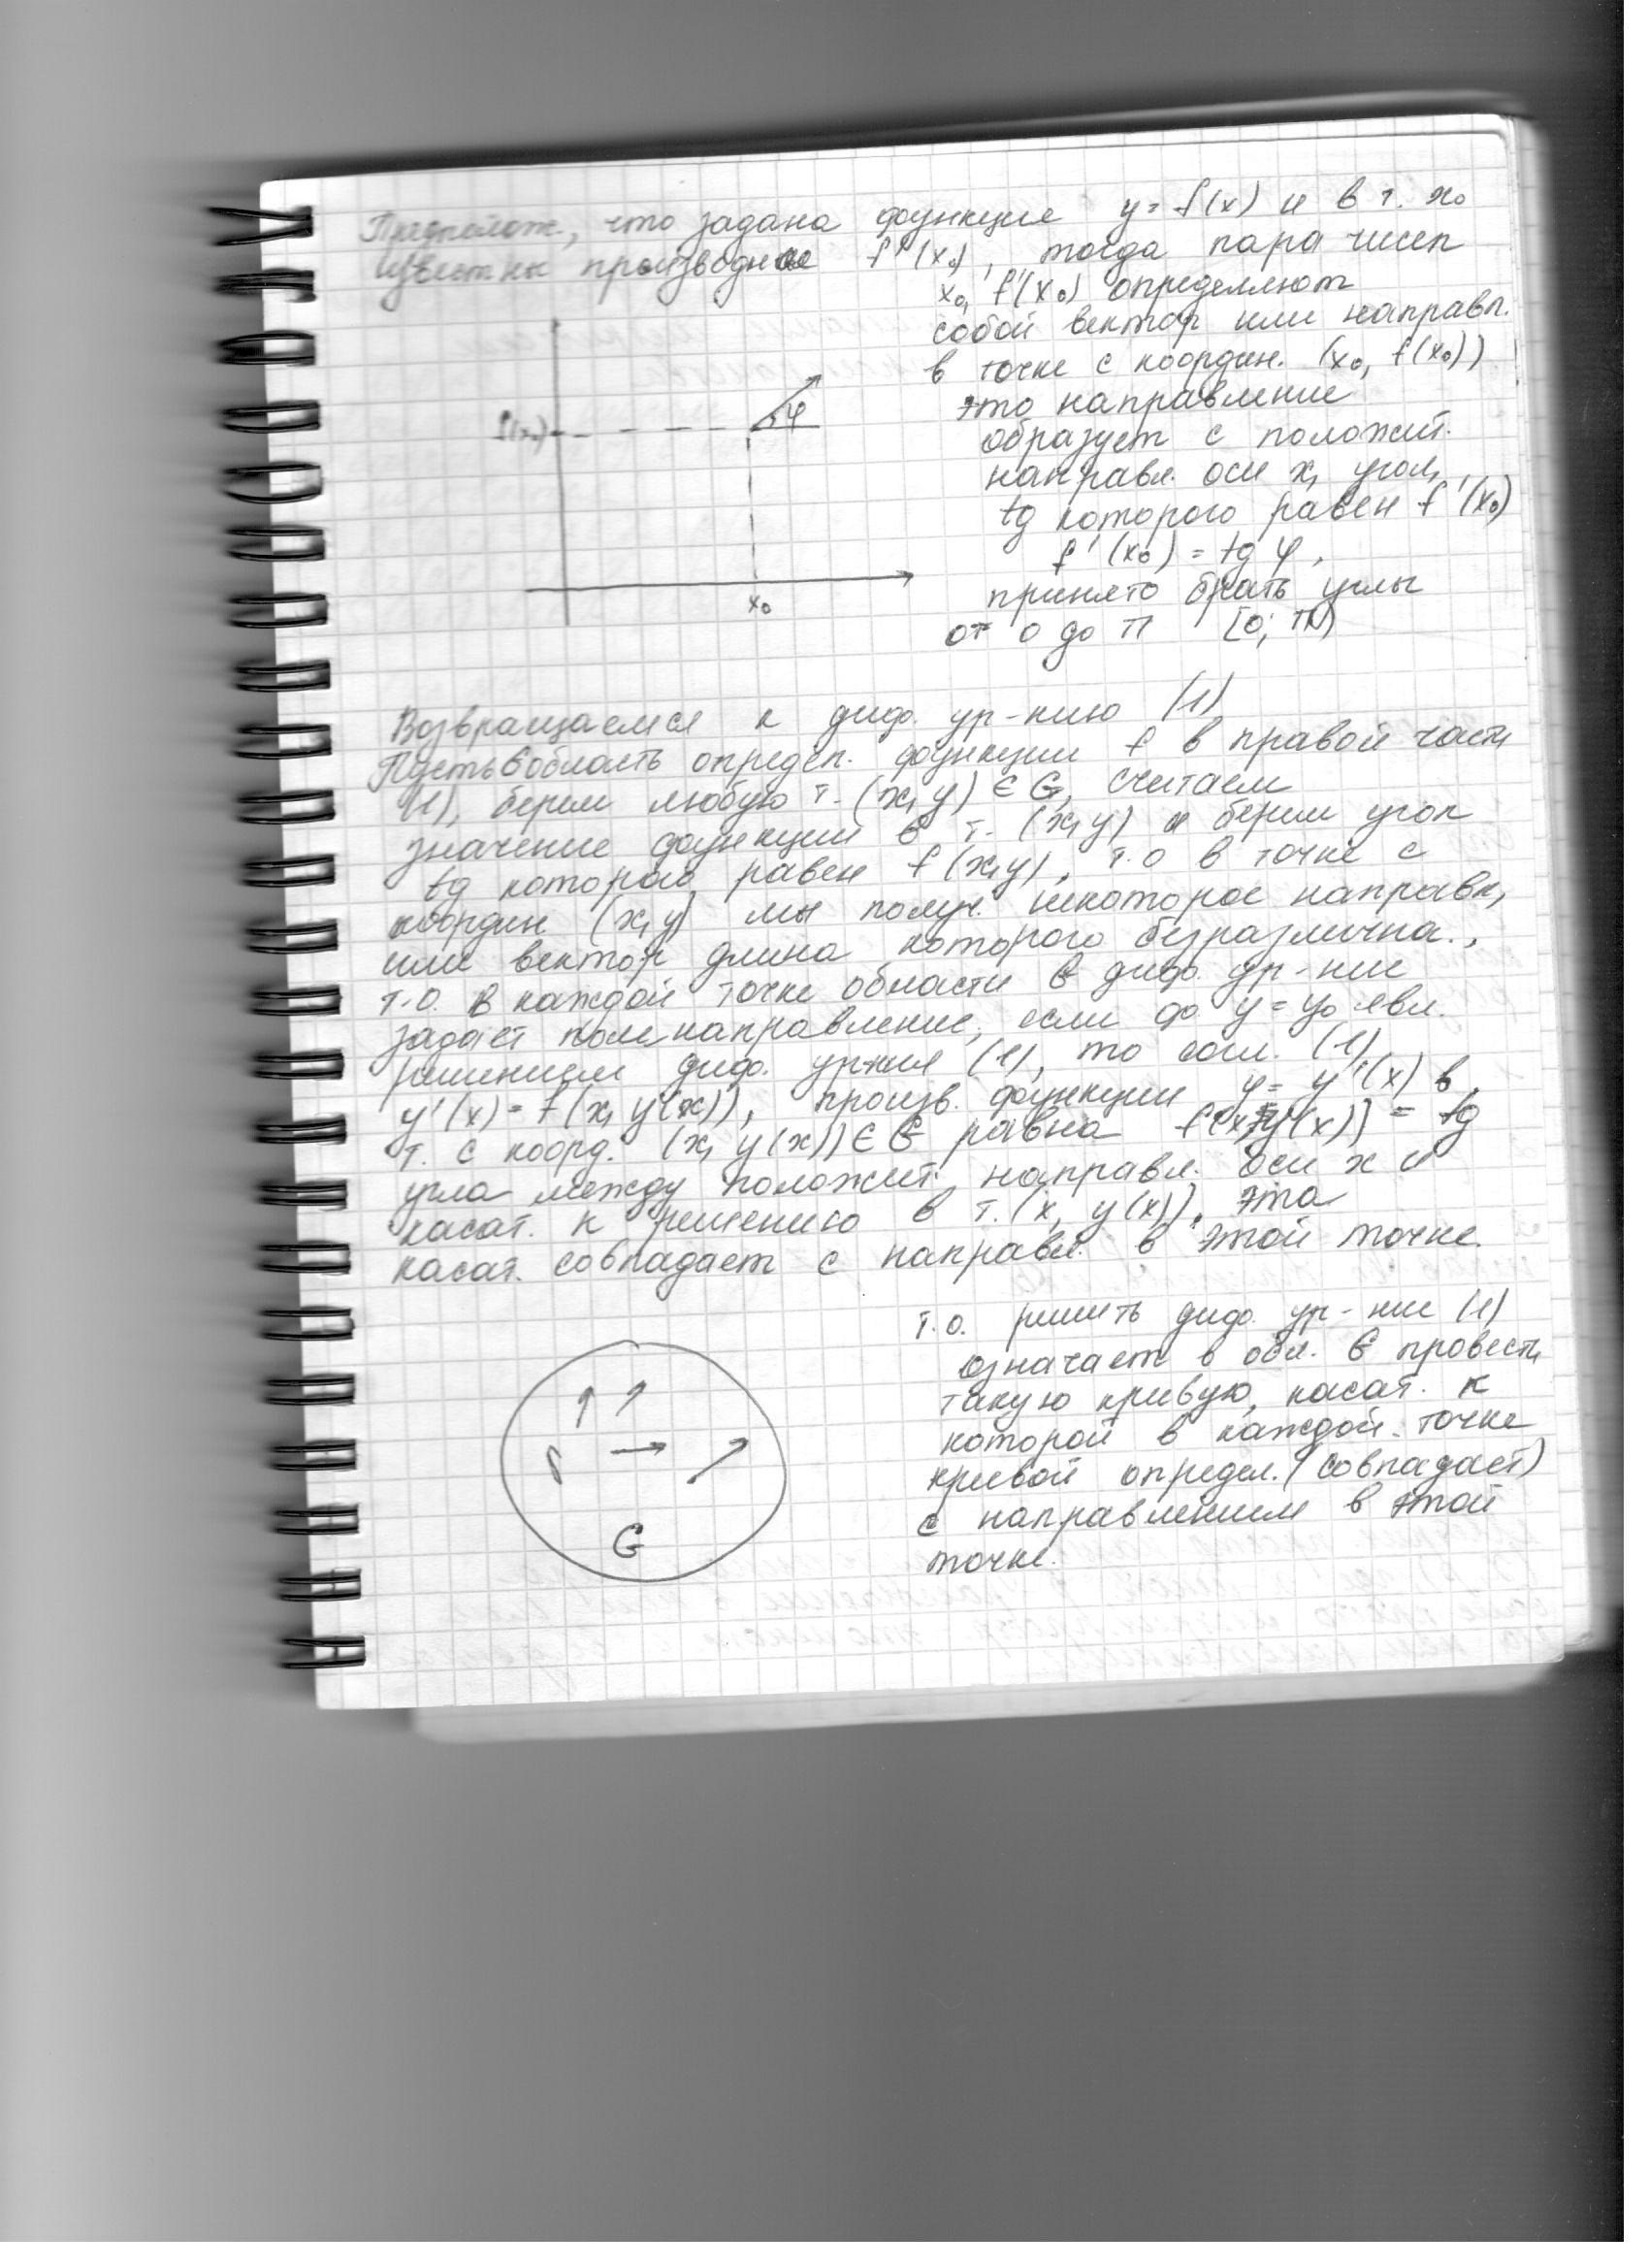 Предполож., что задана функция y = f(x) и в т. x₀
известны производные f'(x₀), тогда пара чисел
x₀, f'(x₀) определяют
собой вектор или направл.
в точке с координ. (x₀, f(x₀))
это направление
образует с положит.
направл. оси x, угол,
tg которого равен f'(x₀)
f'(x₀) = tg φ,
принято брать углы
от 0 до π [0; π)
f(x₀)
φ
x₀
Возвращаемся к диф. ур-нию (1)
Пусть G область определ. функции f в правой части
(1), берем любую т. (x, y) ∈ G, считаем
значение функции в т. (x, y) и берем угол
tg которого равен f(x, y), т.о в точке с
координ (x, y) мы получ. некоторое направл,
или вектор длина которого безразлична.,
т.о. в каждой точке области G диф. ур-ние
задает поле направление, если ф. y = y₀ явл.
решением диф. ур-ния (1), то согл. (1)
y'(x) = f(x, y(x)), произв. функции y = y'(x) в
т. с коорд. (x, y(x)) ∈ G равна f(x, y(x)) = tg
угла между положит. направл. оси x и
касат. к решению в т. (x, y(x)), эта
касат. совпадает с направл. в этой точке.
т.о. решить диф. ур-ние (1)
означает в обл. G провести
такую кривую, касат. к
которой в каждой точке
кривой определ. (совпадает)
с направлением в этой
точке.
G